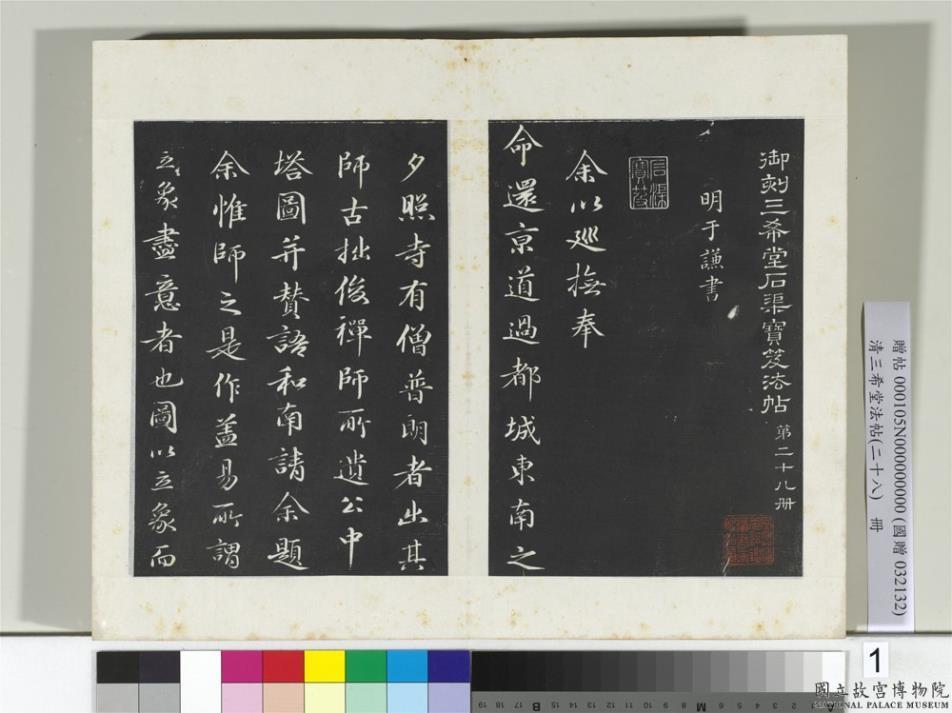 御刻三希堂石渠寶笈法帖 第二十八册
明于謙書
石渠寶笈
余以巡撫奉
命還京道過都城東南之
夕照寺有僧普朗者出其
師古拙俊禪師所遺公中
塔圖并贊語和南請余題
余惟師之是作蓋易所謂
立象盡意者也圖以立象而
贈帖 000105N000000000 (國贈 032132)
清三希堂法帖(二十八) 冊
1
國立故宮博物院
NATIONAL PALACE MUSEUM